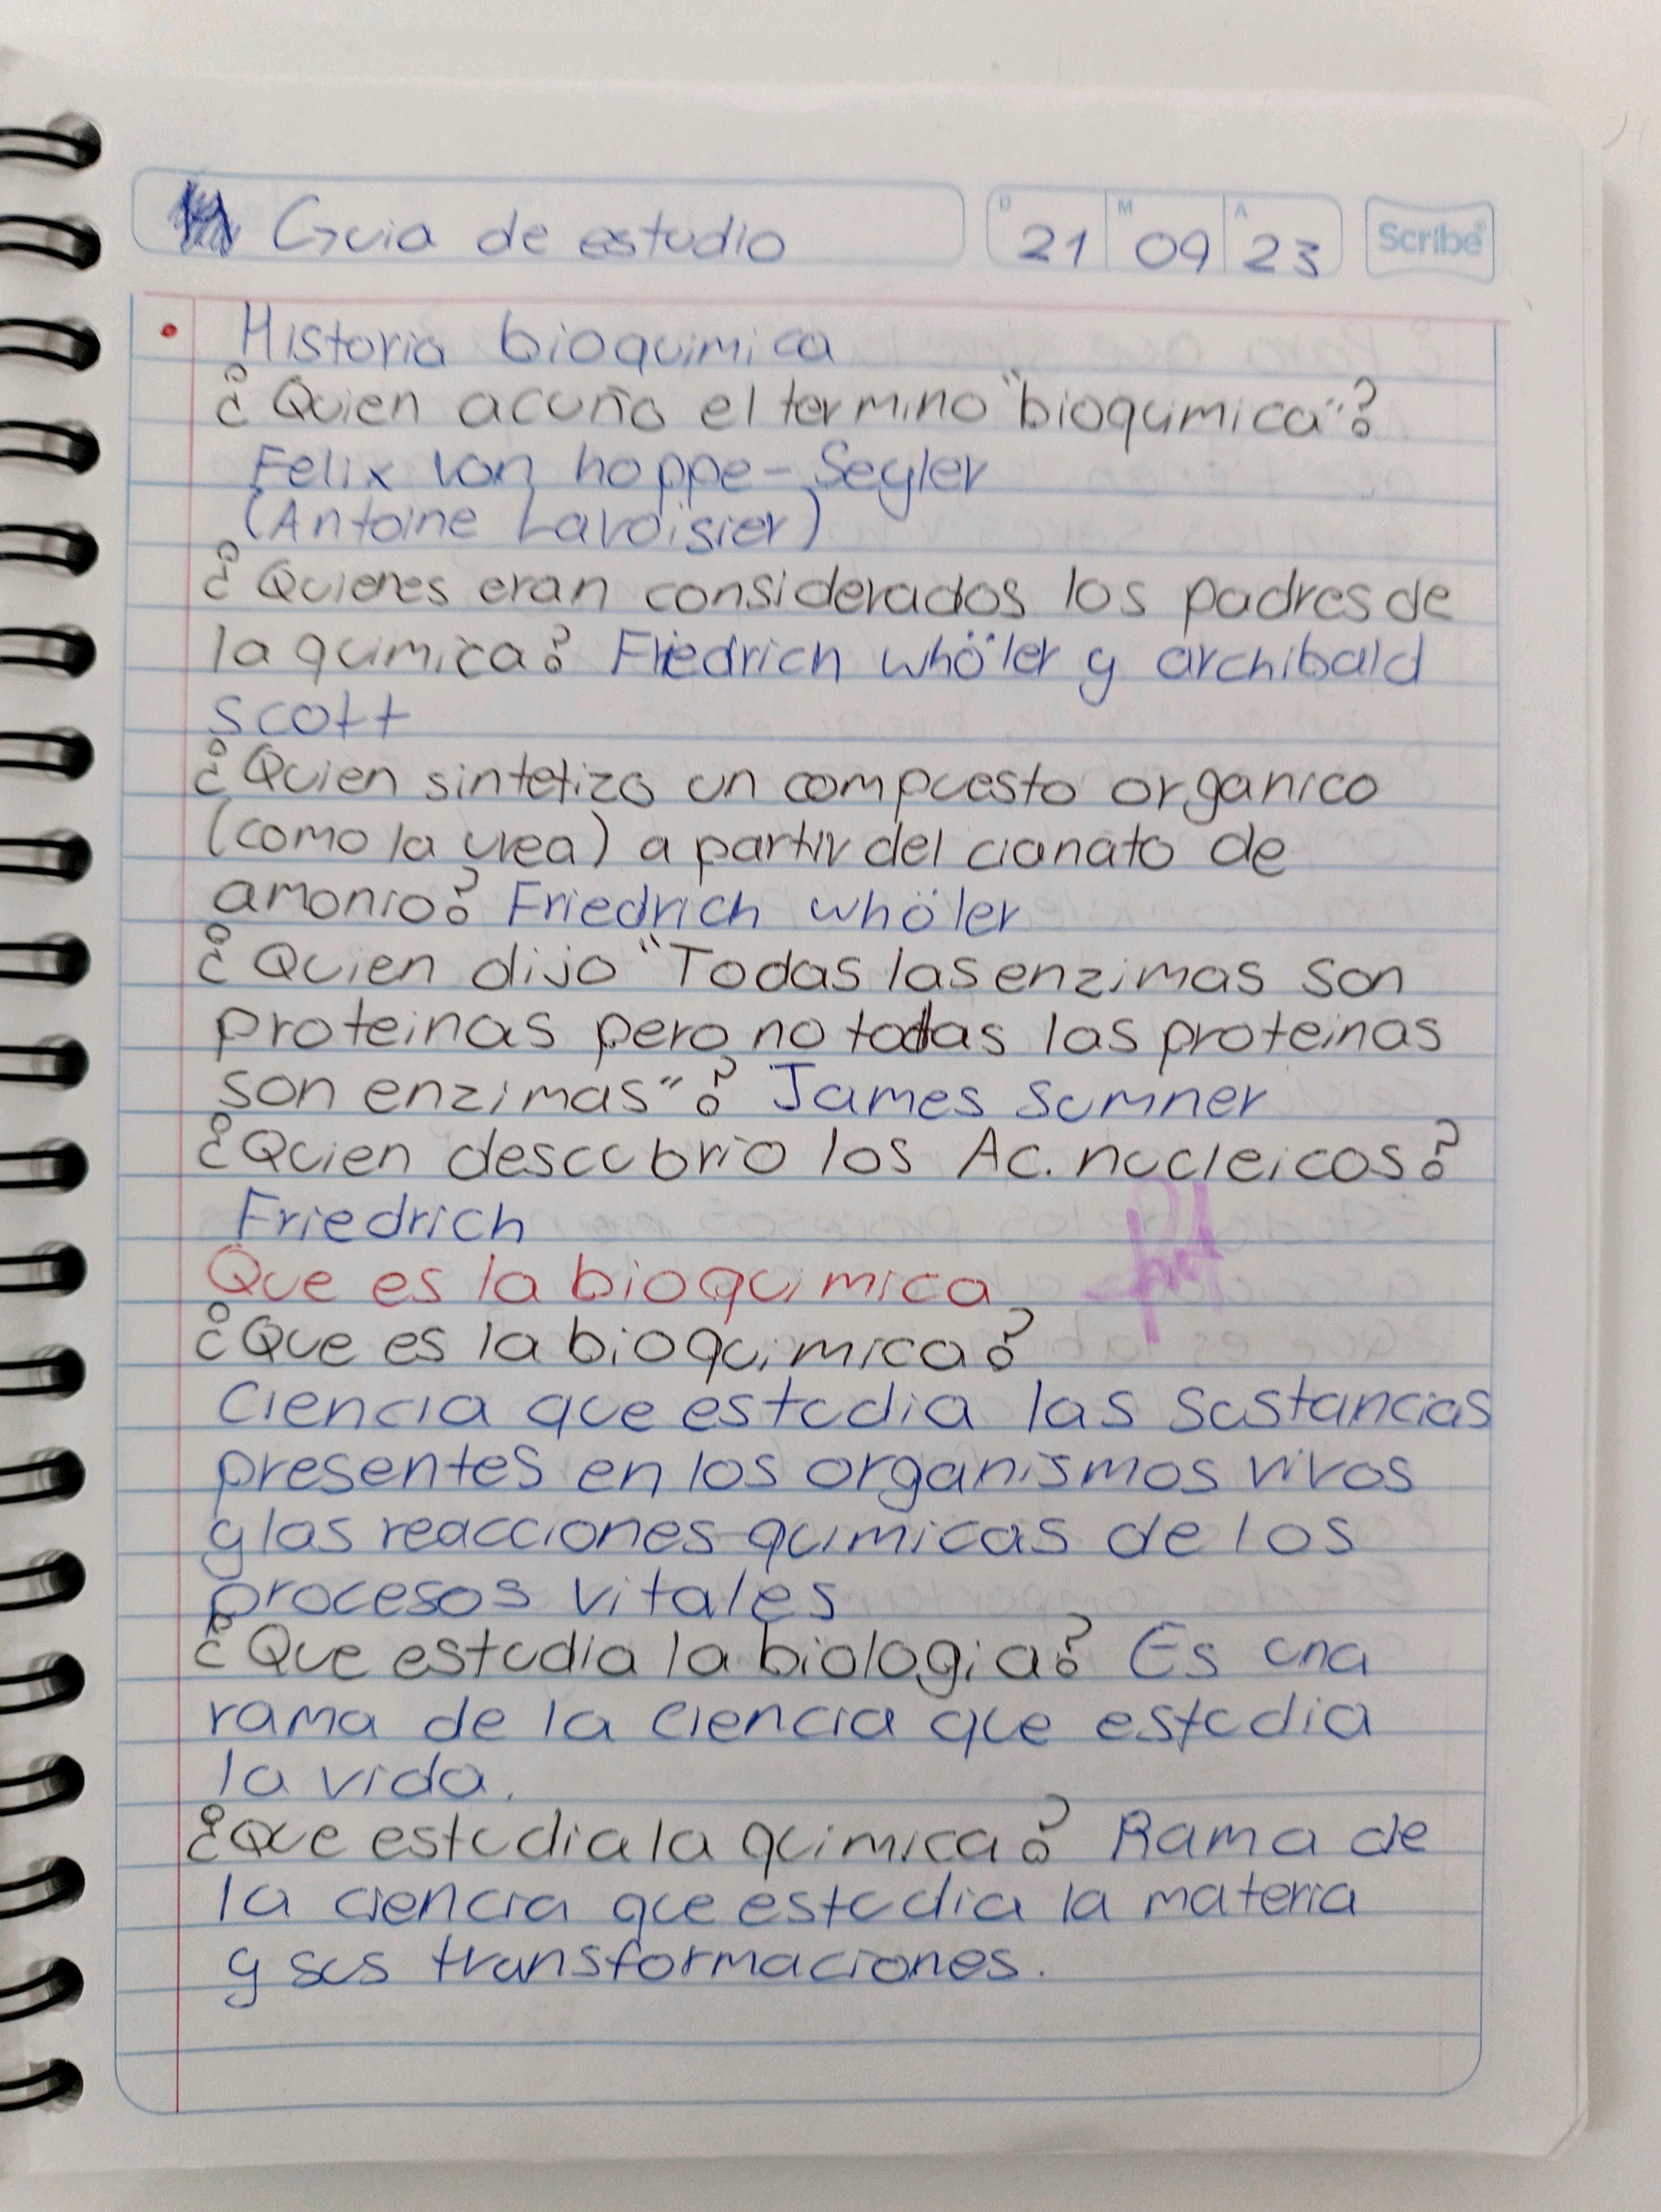 Guia de estudio
D 21 M 09 A 23 Scribe
Historia bioquimica
¿Quien acuño el termino "bioquimica"?
Felix Von hoppe-Seyler
(Antoine Lavoisier)
¿Quienes eran considerados los padres de
la quimica? Friedrich whöler y archibald
scott
¿Quien sintetizo un compuesto organico
(como la urea) a partir del cianato de
amonio? Friedrich whöler
¿Quien dijo "Todas las enzimas son
proteinas pero no todas las proteinas
son enzimas"? James Sumner
¿Quien descubrio los Ac. nucleicos?
Friedrich
Que es la bioquimica
¿Que es la bioquimica?
Ciencia que estudia las sustancias
presentes en los organismos vivos
y las reacciones quimicas de los
procesos vitales
¿Que estudia la biologia? Es una
rama de la ciencia que estudia
la vida.
¿Que estudia la quimica? Rama de
la ciencia que estudia la materia
y sus transformaciones.